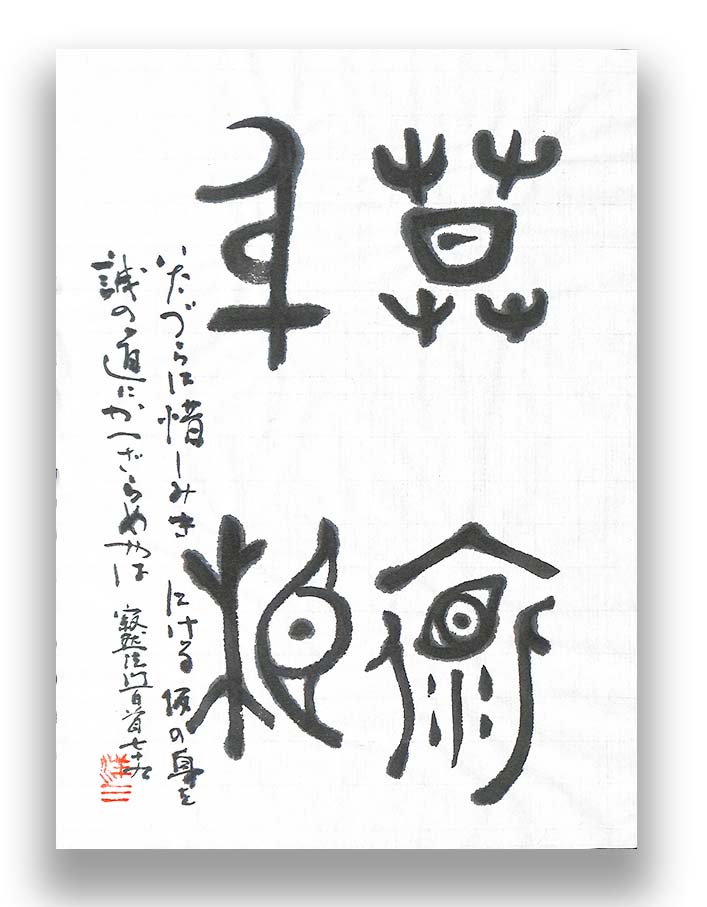 莫
身相
いたづらに惜しみきにける仮の身を
誠の道にかへざらめやは 寂然法門百首七十九